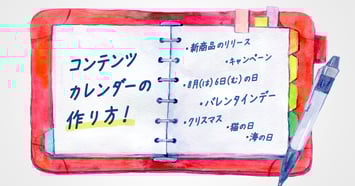 コンテンツ
カレンダーの
作り方！
・新商品のリリース
・キャンペーン
・8月(は)6日(む)の日
・バレンタインデー
・クリスマス
・猫の日
・海の日